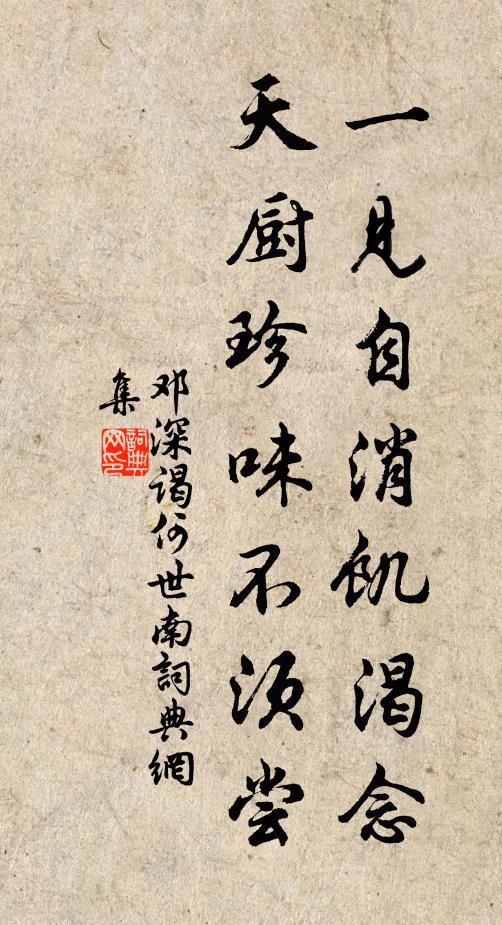 一見自消飢渴念
天厨珍味不須尝
邓深謁何世南詞典網
集
詞典
网印